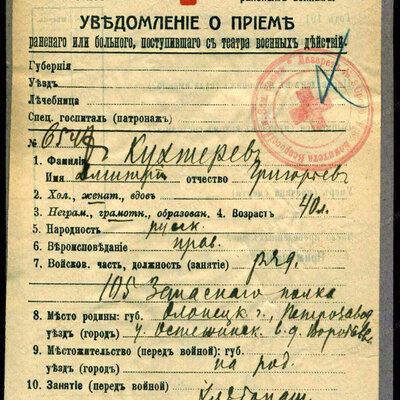 УВѢДОМЛЕНІЕ О ПРІЕМѢ
раненаго или больного, поступившаго съ театра военныхъ дѣйствій.
Губернія
Уѣздъ
Лѣчебница
Спец. госпиталь (патронажъ)
№
1. Фамилія Кухтеревъ
Имя Дмитрій отчество Григорьев
2. Хол., женат., вдовъ
3. Неграм., грамотн., образован. 4. Возрастъ 40 л.
5. Народность русск
6. Вѣроисповѣданіе прав.
7. Войсков. часть, должность (занятіе) ряд.
105 Запаснаго полка
8. Мѣсто родины: губ. Олонецк г., Петрозавод
уѣздъ (городъ) у.
9. Мѣстожительство (передъ войной): губ.
уѣздъ (городъ) на род.
10. Занятіе (передъ войной)
Хлѣбопаш.